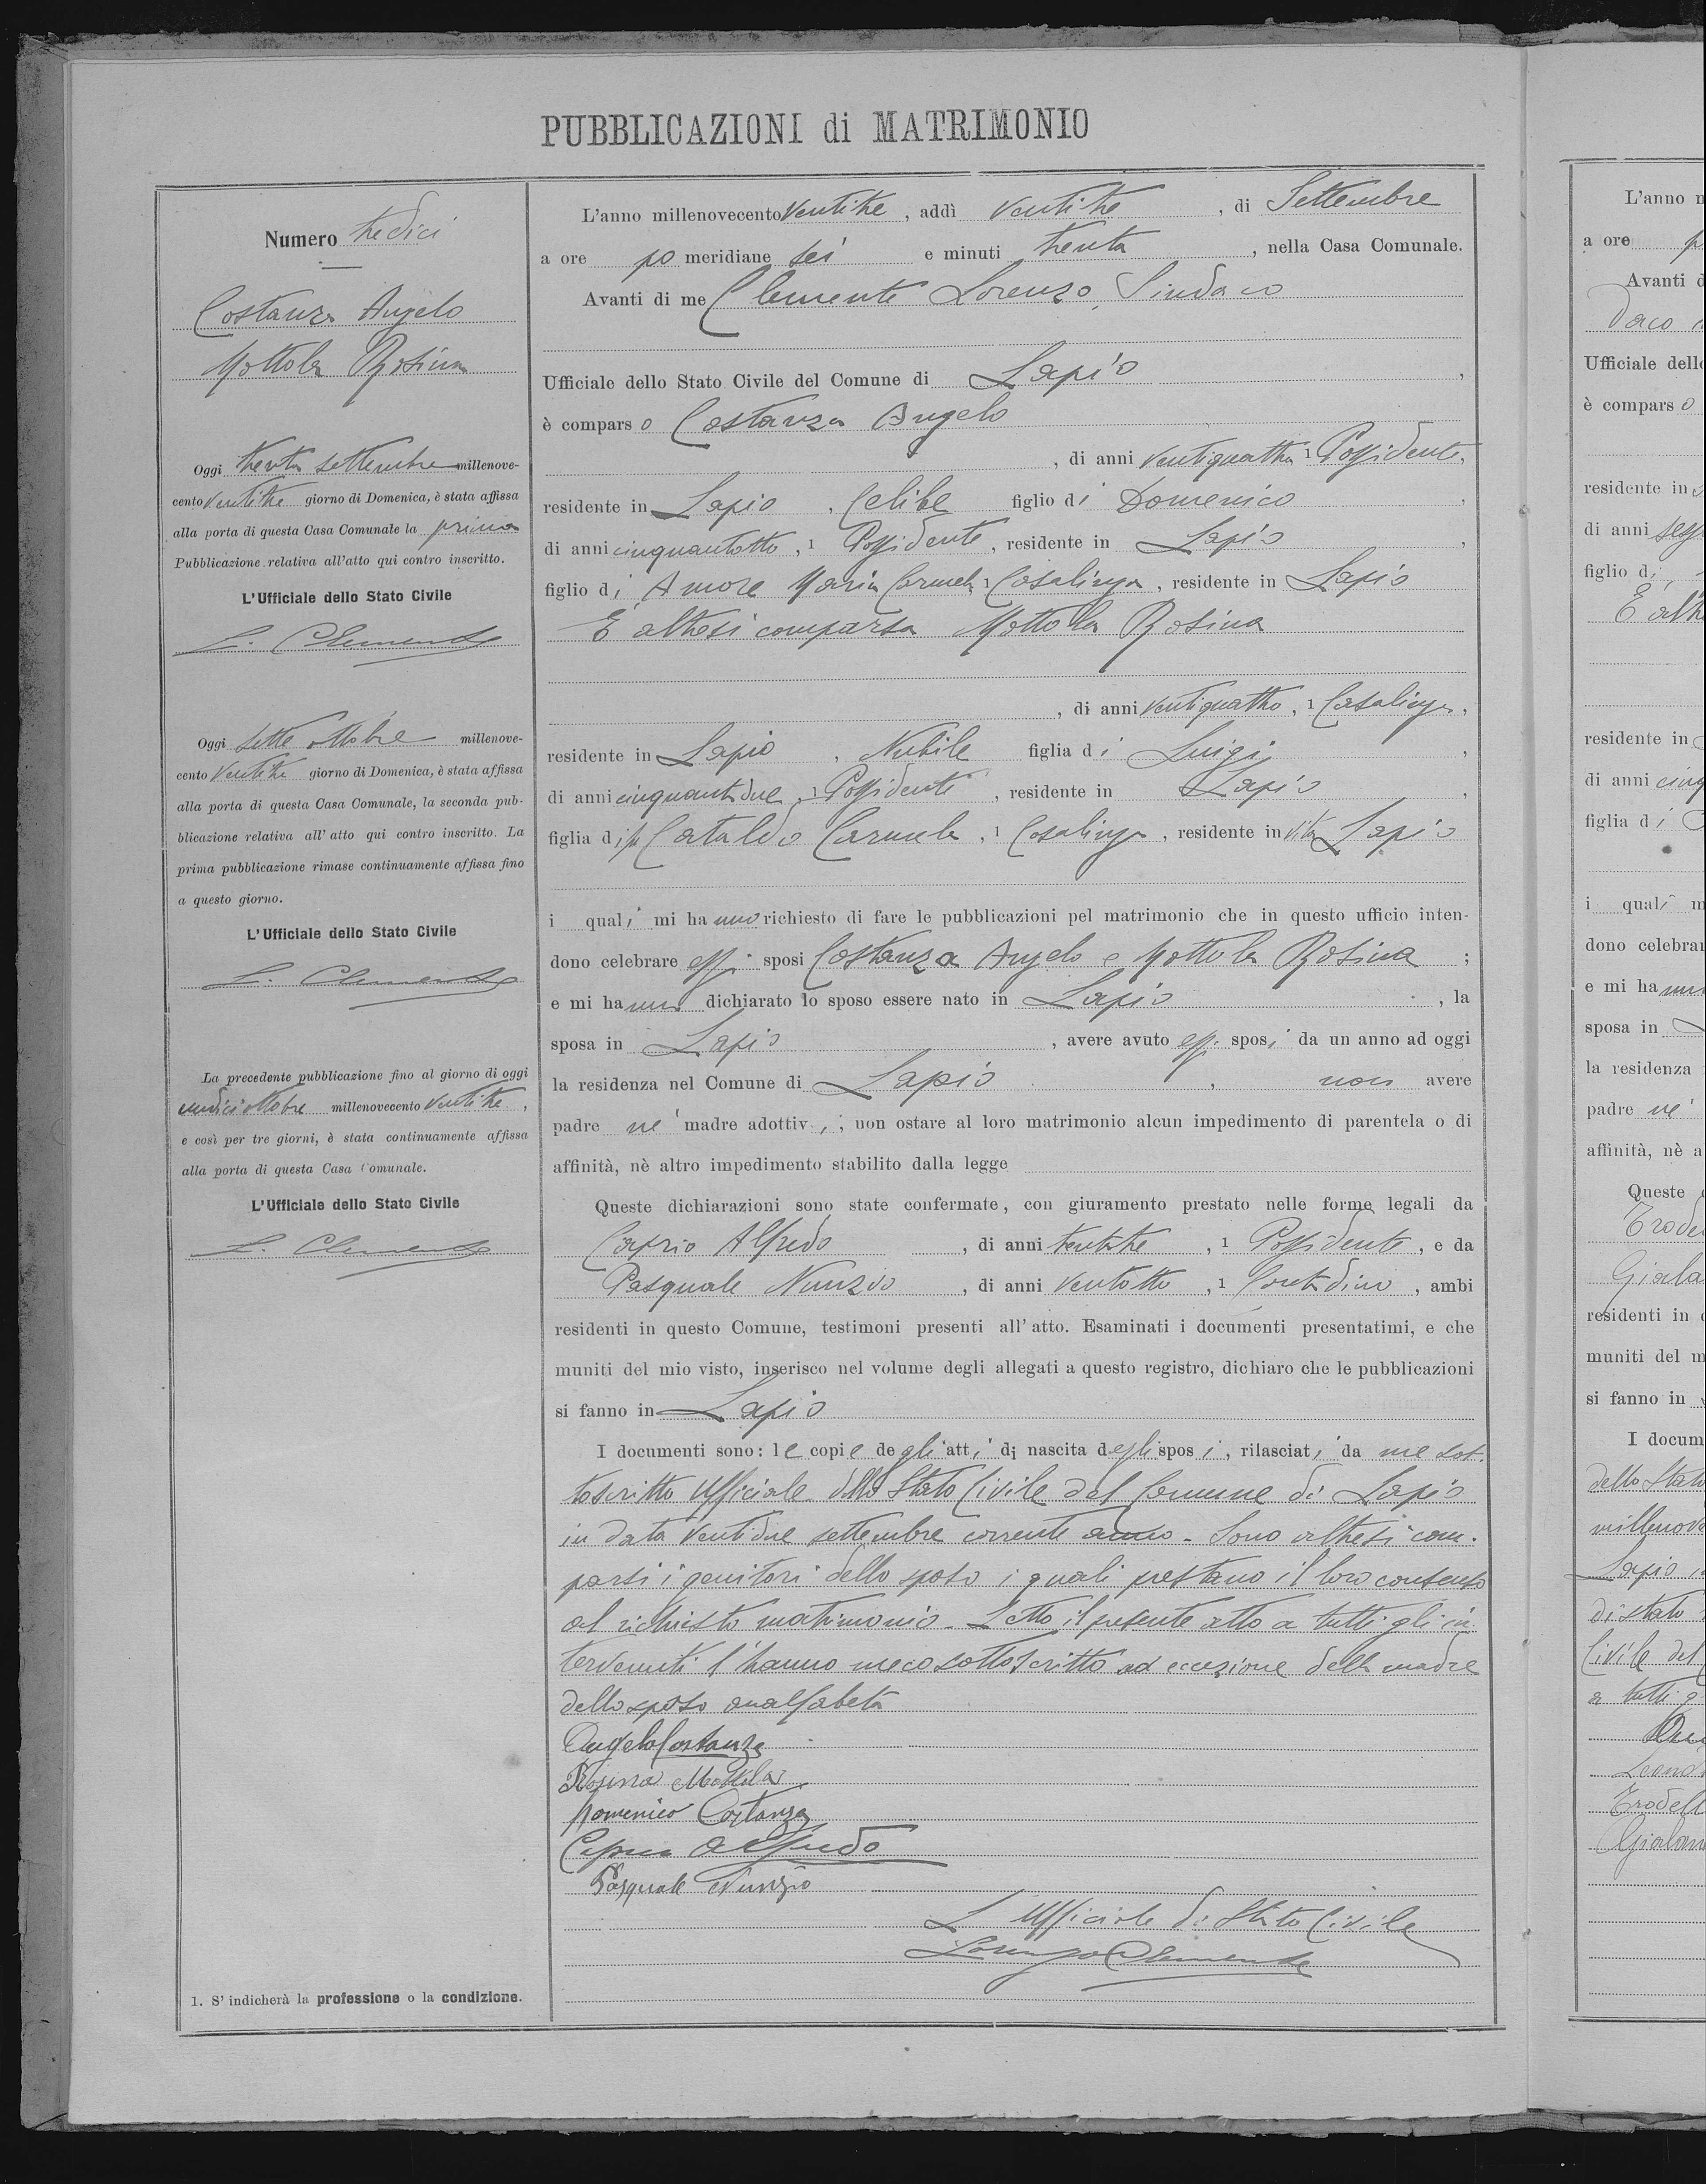 PUBBLICAZIONI di MATRIMONIO
Numero tredici
Costanza Angelo
Mottola Rosina
Oggi trenta settembre millenove-
cento ventitre giorno di Domenica, è stata affissa
alla porta di questa Casa Comunale la prima
Pubblicazione relativa all'atto qui contro inscritto.
L'Ufficiale dello Stato Civile
L. Clemente
Oggi sette ottobre millenove-
cento ventitre giorno di Domenica, è stata affissa
alla porta di questa Casa Comunale, la seconda pub-
blicazione relativa all'atto qui contro inscritto. La
prima pubblicazione rimase continuamente affissa fino
a questo giorno.
L'Ufficiale dello Stato Civile
L. Clemente
La precedente pubblicazione fino al giorno di oggi
undici ottobre millenovecento ventitre,
e così per tre giorni, è stata continuamente affissa
alla porta di questa Casa Comunale.
L'Ufficiale dello Stato Civile
L. Clemente
1. S'indicherà la professione o la condizione.
L'anno millenovecento ventitre, addì ventitre, di Settembre
a ore po meridiane sei e minuti trenta, nella Casa Comunale.
Avanti di me Clemente Lorenzo, Sindaco
Ufficiale dello Stato Civile del Comune di Lapio,
è comparso Costanza Angelo
, di anni ventiquattro, 1 Possidente,
residente in Lapio, Celibe figlio di Domenico,
di anni cinquantotto, 1 Possidente, residente in Lapio,
figlio di Amore Maria Carmela 1 Casalinga, residente in Lapio
È altresì comparsa Mottola Rosina
, di anni ventiquattro, 1 Casalinga,
residente in Lapio, Nubile figlia di Luigi,
di anni cinquantadue, 1 Possidente, residente in Lapio,
figlia di fu Cataldo Carmela, 1 Casalinga, residente in vita Lapio
i quali mi hanno richiesto di fare le pubblicazioni pel matrimonio che in questo ufficio inten-
dono celebrare essi sposi Costanza Angelo e Mottola Rosina;
e mi hanno dichiarato lo sposo essere nato in Lapio, la
sposa in Lapio, avere avuto essi sposi da un anno ad oggi
la residenza nel Comune di Lapio, non avere
padre nè madre adottivi; non ostare al loro matrimonio alcun impedimento di parentela o di
affinità, nè altro impedimento stabilito dalla legge
Queste dichiarazioni sono state confermate, con giuramento prestato nelle forme legali da
Caprio Alfredo, di anni trentatre, 1 Possidente, e da
Pasquale Nunzio, di anni ventotto, 1 Contadino, ambi
residenti in questo Comune, testimoni presenti all'atto. Esaminati i documenti presentatimi, e che
muniti del mio visto, inserisco nel volume degli allegati a questo registro, dichiaro che le pubblicazioni
si fanno in Lapio
I documenti sono: le copie degli atti di nascita degli sposi, rilasciati da me sot-
toscritto Ufficiale dello Stato Civile del Comune di Lapio
in data ventidue settembre corrente anno. Sono altresì com-
parsi i genitori dello sposo i quali prestano il loro consenso
al richiesto matrimonio. Letto il presente atto a tutti gli in-
tervenuti l'hanno meco sottoscritto ad eccezione della madre
dello sposo analfabeta
Angelo Costanza
Rosina Mottola
Domenico Costanza
Caprio Alfredo
Pasquale Nunzio
L'Ufficiale di Stato Civile
Lorenzo Clemente
L'anno
a ore
Avanti
daco
Ufficiale
è comparso
residente in
di anni
figlio di
È
residente in
di anni
figlia di
i quali
dono
e mi ha
sposa in
la residenza
padre nè
affinità, nè
Queste
residenti in
muniti del
si fanno in
I
dello
Lapio
di stato
Civile del
a tutti